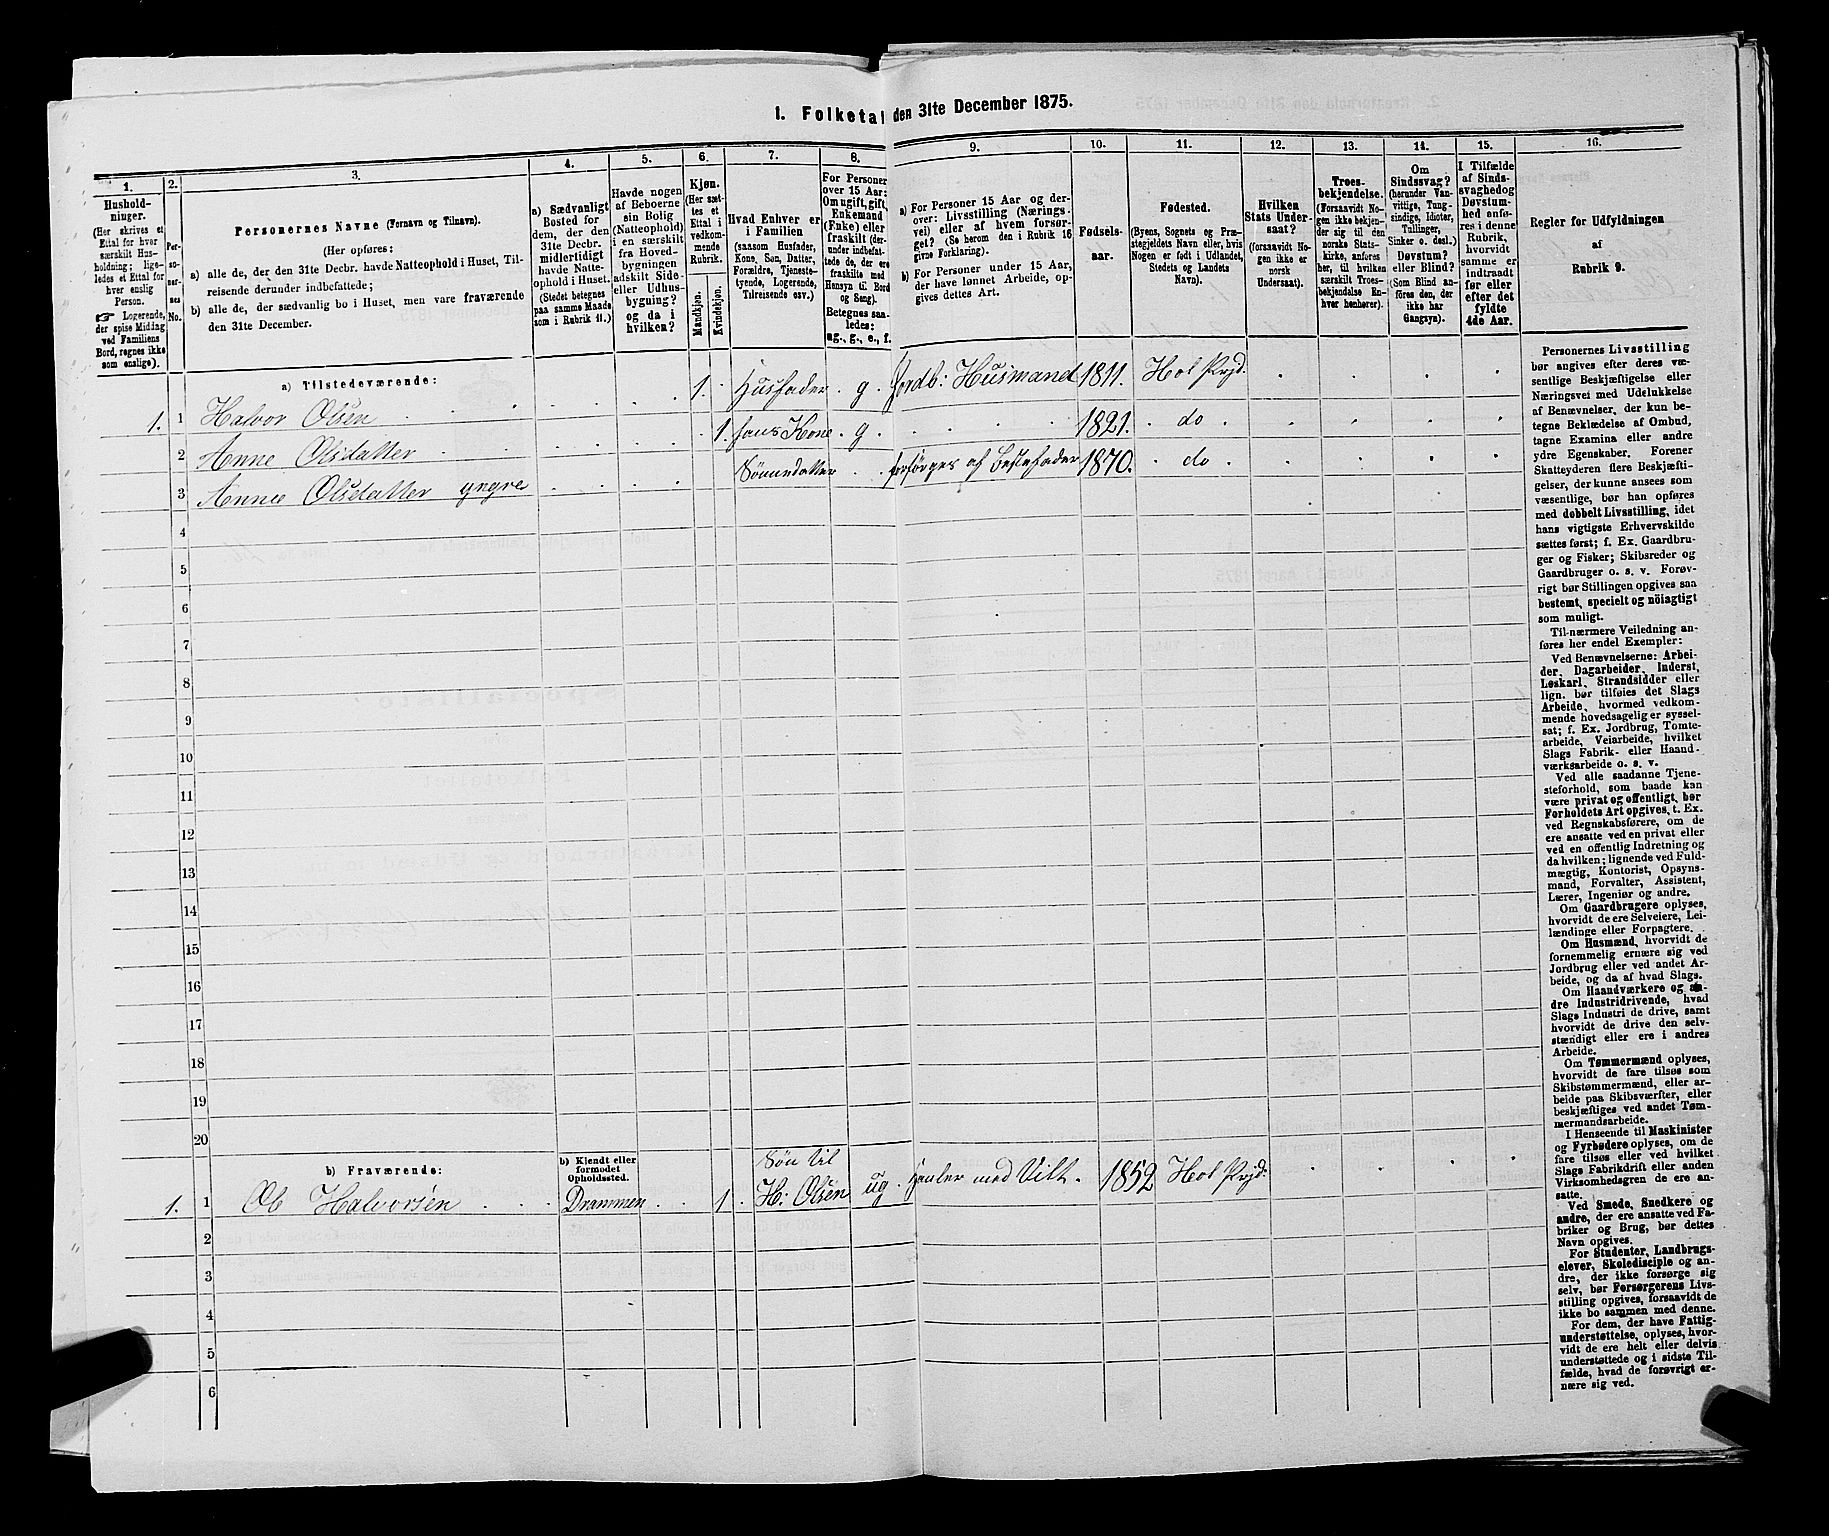 1. Folketal den 31te December 1875.
1.
2.
3.
4.
5.
6.
7.
8.
9.
10.
11.
12.
13.
14.
15.
16.
Hushold-
ninger.
(Her skrives et
Ettal for hver
særskilt Hus-
holdning; lige-
ledes et Ettal for
hver enslig
Person.
☞ Logerende,
der spise Middag
ved Familiens
Bord, regnes ikke
som enslige).
Per-
so-
ner-
nes
No.
Personernes Navne (Fornavn og Tilnavn).
(Her opføres:
a) alle de, der den 31te Decbr. havde Natteophold i Huset, Til-
reisende derunder indbefattede;
b) alle de, der sædvanlig bo i Huset, men vare fraværende
den 31te December.
a) Sædvanligt
Bosted for
dem, der den
31te Decbr.
midlertidigt
havde Natte-
ophold i Huset.
(Stedet betegnes
paa samme Maade
som i Rubrik 11.)
Havde nogen
af Beboerne
sin Bolig
(Natteophold)
i en særskilt
fra Hoved-
bygningen
adskilt Side-
eller Udhus-
bygning?
og da i
hvilken?
Kjøn.
(Her sæt-
tes et
Ettal i
vedkom-
mende
Rubrik.
Mandkjøn.
Kvindekjøn.
Hvad Enhver er
i Familien
(saasom Husfader,
Kone, Søn, Datter,
Forældre, Tjeneste-
tyende, Logerende,
Tilreisende osv.)
For Personer
over 15 Aar:
Om ugift, gift,
Enkemand
(Enke) eller
fraskilt (der-
under indbefat-
tede de, der ere
fraskilte med
Hensyn til Bord
og Seng).
Betegnes saa-
ledes:
ug., g., e., f.
a) For Personer 15 Aar og der-
over: Livsstilling (Nærings-
vei) eller af hvem forsør-
get? (Se herom den i Rubrik 16
givne Forklaring).
b) For Personer under 15 Aar,
der have lønnet Arbeide, op-
gives dettes Art.
Fødsels-
aar.
Fødested.
(Byens, Sognets og Præ-
stegjeldets Navn eller, hvis
Nogen er født i Udlandet,
Stedets og Landets
Navn).
Hvilken
Stats Under-
saat?
(forsaavidt No-
gen ikke er
norsk
Undersaat).
Troes-
bekjendelse.
(Forsaavidt No-
gen ikke bekjen-
der sig til den
norske Stats-
kirke, anføres
her, til hvilken
særskilt Troes-
bekjendelse En-
hver henhører).
Om
Sindssvag?
(herunder Van-
vittige, Tung-
sindige, Idioter,
Tullinger,
Sinker o. desl.)
Døvstum?
eller Blind?
(Som Blind an-
føres den, der
ikke har
Gangsyn).
I Tilfælde
af Sinds-
svaghed og
Døvstum-
hed anfø-
res i denne
Rubrik,
hvorvidt
samme er
indtraadt
før eller
efter det
fyldte
4de Aar.
Regler for Udfyldningen
af
Rubrik 9.
a) Tilstedeværende:
1. 1 Halvor Olsen 1. Husfader g. Jordb: Husmand 1811. Hol Prgd.
2 Anne Olsdatter 1. hans Kone g. 1821. do
3 Anne Olsdatter yngre Sønnedatter forsørges af Bestefader 1870. do
4
5
6
7
8
9
10
11
12
13
14
15
16
17
18
19
20
b) Fraværende:
b) Kjendt eller
formodet
Opholdssted.
Søn til
1. 1 Halvorsen Drammen 1. H: Olsen ug. Handler med Vilt. 1852 Hol Prgd:
2
3
4
5
6
Personernes Livsstilling
bør angives efter deres væ-
sentlige Beskjæftigelse eller
Næringsvei med Udelukkelse
af Benævnelser, der kun be-
tegne Beklædelse af Ombud,
tagne Examina eller andre
ydre Egenskaber. Forener
Skatteyderen flere Beskjæfti-
gelser, der kunne ansees som
væsentlige, bør han opføres
med dobbelt Livsstilling, idet
hans vigtigste Erhvervskilde
sættes først; f. Ex. Gaardbru-
ger og Fisker; Skibsreder og
Gaardbruger o. s. v. Forøv-
rigt bør Stillingen opgives saa
bestemt, specielt og nöiagtigt
som muligt.
Til nærmere Veiledning an-
føres her endel Exempler:
Ved Benævnelserne: Arbei-
der, Dagarbeider, Inderst,
Løskarl, Strandsidder eller
lign. bør tilføies det Slags
Arbeide, hvormed vedkom-
mende hovedsagelig er syssel-
sat; f. Ex. Jordbrug, Tomte-
arbeide, Veiarbeide, hvilket
Slags Fabrik- eller Haand-
værksarbeide o. s. v.
Ved alle saadanne Tjene-
steforhold, som baade kan
være privat og offentligt, bør
Forholdets Art opgives, t. Ex.
ved Regnskabsførere, om de
ere ansatte ved en privat eller
ved en offentlig Indretning og
da hvilken; lignende ved Fuld-
mægtig, Kontorist, Opsyns-
mand, Forvalter, Assistent,
Lærer, Ingeniør og andre.
Om Gaardbrugere oplyses,
hvorvidt de ere Selveiere, Lei-
lændinge eller Forpagtere.
Om Husmænd, hvorvidt de
fornemmelig ernære sig ved
Jordbrug eller ved andet Ar-
beide, og da af hvad Slags.
Om Haandværkere og an-
dre Industridrivende, hvad
Slags Industri de drive, samt
hvorvidt de drive den selv-
stændigt eller ere i andres
Arbeide.
Om Tømmermænd oplyses,
hvorvidt de fare tilsøs som
Skibstømmermænd, eller ar-
beide paa Skibsværfter, eller
beskjæftiges ved andet Tøm-
mermandsarbeide.
I Henseende til Maskinister
og Fyrbødere oplyses, om de
fare tilsøs eller ved hvilket
Slags Fabrikdrift eller anden
Virksomhedsgren de ere an-
satte.
Ved Smede, Snedkere og
andre, der ere ansatte ved Fa-
briker og Brug, bør dettes
Navn opgives.
For Studenter, Landbrugs-
elever, Skoledisciple og an-
dre, der ikke forsørge sig
selv, bør Forsørgerens Livs-
stilling opgives, forsaavidt de
ikke bo sammen med denne.
For dem, der have Fattig-
understøttelse, oplyses, hvor-
vidt de ere helt eller delvis
understøttede og i sidste Til-
fælde, hvad de forøvrigt er-
nære sig ved.